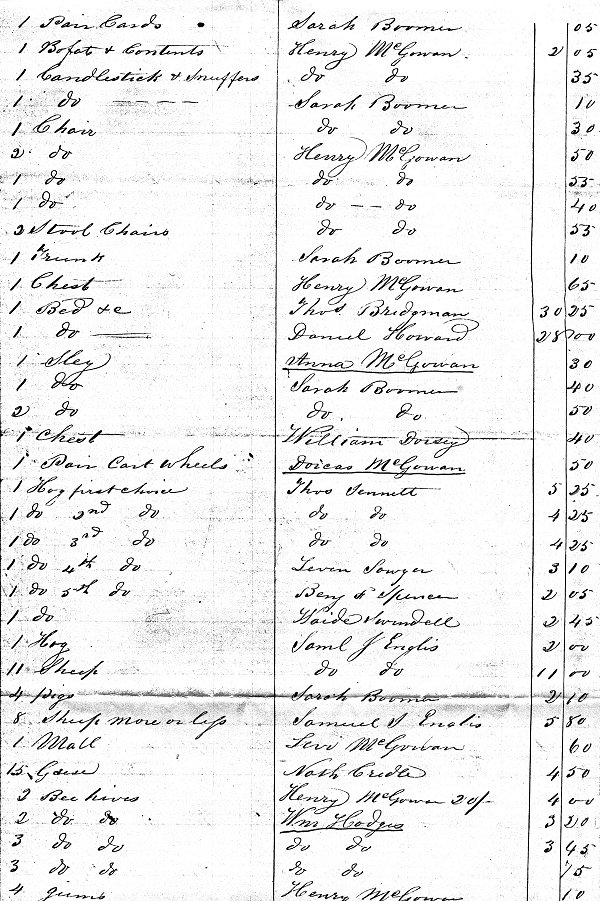 1 Pair Cards Sarah Boomer 05
1 Bofat & Contents Henry McGowan 2 05
1 Candlestick & Snuffers do do 35
1 do Sarah Boomer 10
1 Chair do do 30
2 do Henry McGowan 50
1 do do do 55
1 do do do 40
2 Stool Chairs do do 55
1 Trunk Sarah Boomer 10
1 Chest Henry McGowan 65
1 Bed &c Thos Bridgman 30 25
1 do Daniel Howard 28 00
1 Sley Anna McGowan 30
1 do Sarah Boomer 40
2 do do do 50
1 Chest William Dorsey 40
1 Pair Cart Wheels Dorcas McGowan 50
1 Hog first choice Thos Sennett 5 25
1 do 2nd do do do 4 25
1 do 3rd do do do 4 25
1 do 4th do Leven Sawyer 3 10
1 do 5th do Benj Spencer 2 05
1 do Swindell 2 45
1 Hog Saml J Englis 2 00
11 Sheep do do 11 00
4 pigs Sarah Boomer 2 10
8 Sheep more or less Samuel J Englis 5 80
1 Mall Levi McGowan 60
15 Geese Nash Credle 4 50
2 Bee hives Henry McGowan 20/- 4 00
2 do do Wm Hodges 3 20
3 do do do do 3 45
3 do do do do 75
4 gums Henry McGowan 10